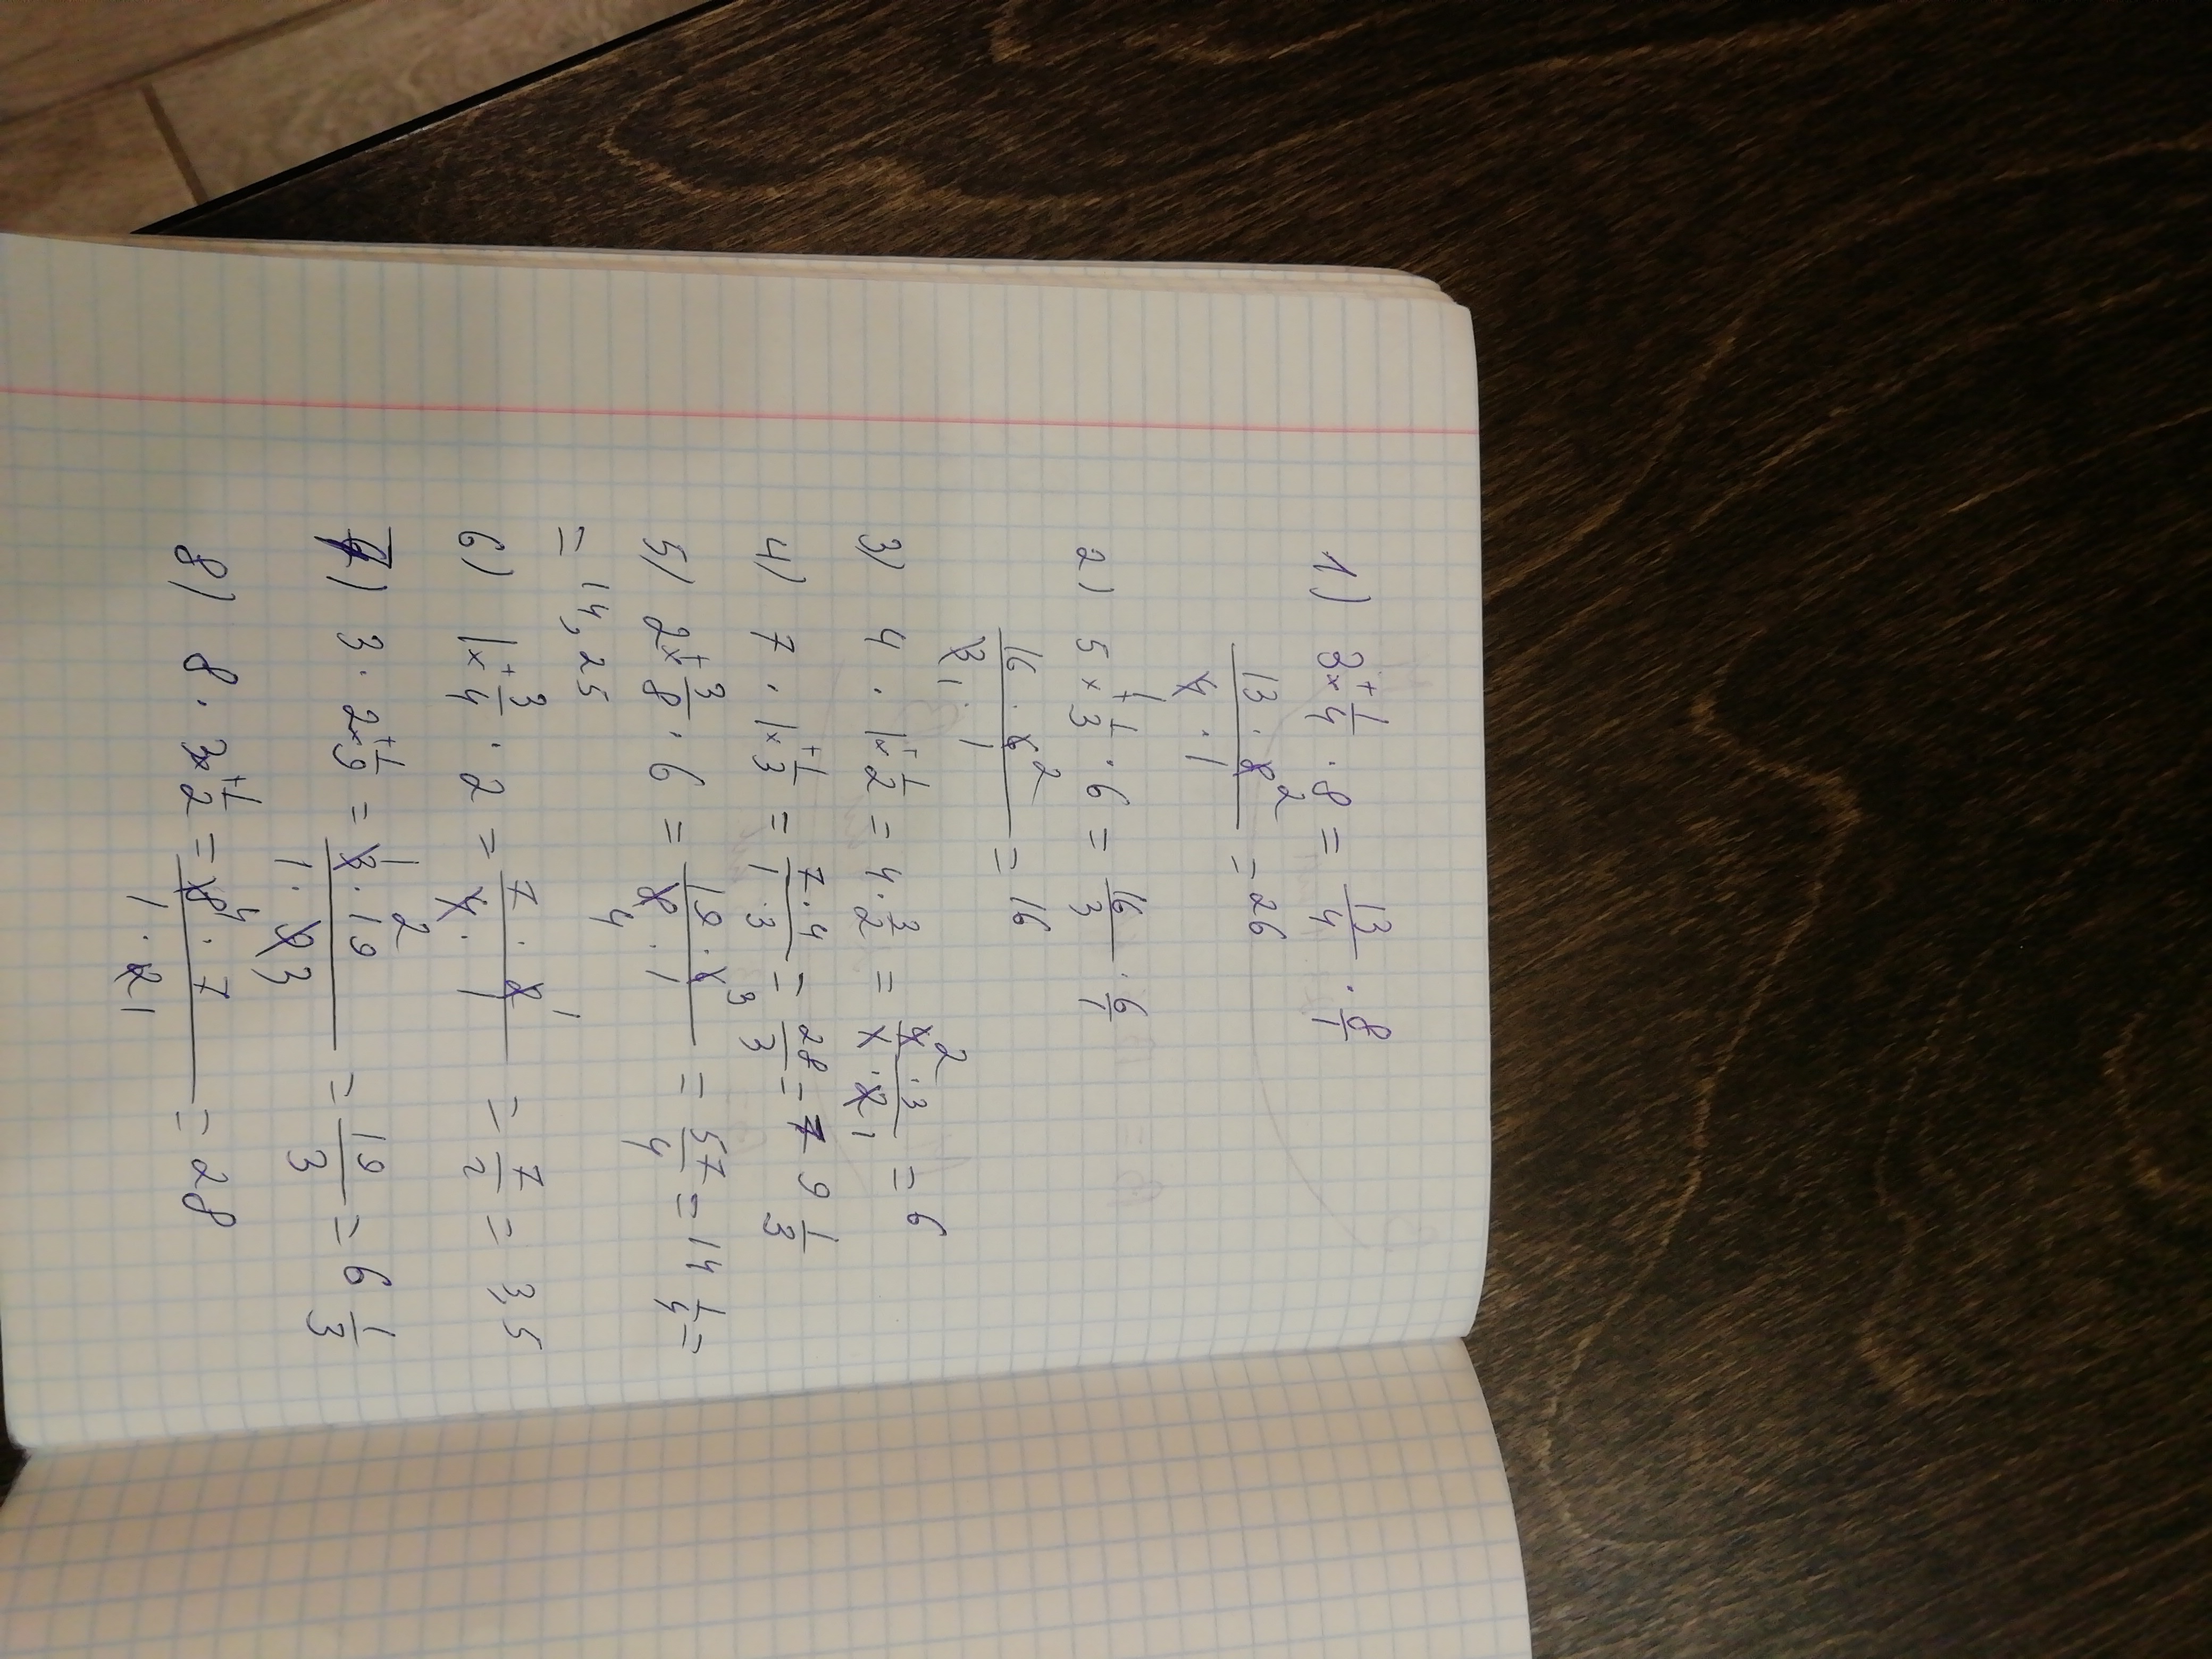 1) 3 1/4 · 8 = 13/4 · 8/1
13 · 8 2 / 4 · 1 = 26
2) 5 1/3 · 6 = 16/3 · 6/1
16 · 6 2 / 3 1 · 1 = 16
3) 4 · 1 1/2 = 4 · 3/2 = 4 2 · 3 / 1 · 2 1 = 6
4) 7 · 1 1/3 = 7 · 4 / 1 · 3 = 28/3 = 9 1/3
5) 2 3/8 · 6 = 19 · 6 3 / 8 4 · 1 = 57/4 = 14 1/4 =
= 14,25
6) 1 3/4 · 2 = 7 · 2 1 / 4 2 · 1 = 7/2 = 3,5
7) 3 · 2 1/9 = 3 1 · 19 / 1 · 9 3 = 19/3 = 6 1/3
8) 8 · 3 1/2 = 8 4 · 7 / 1 · 2 1 = 28